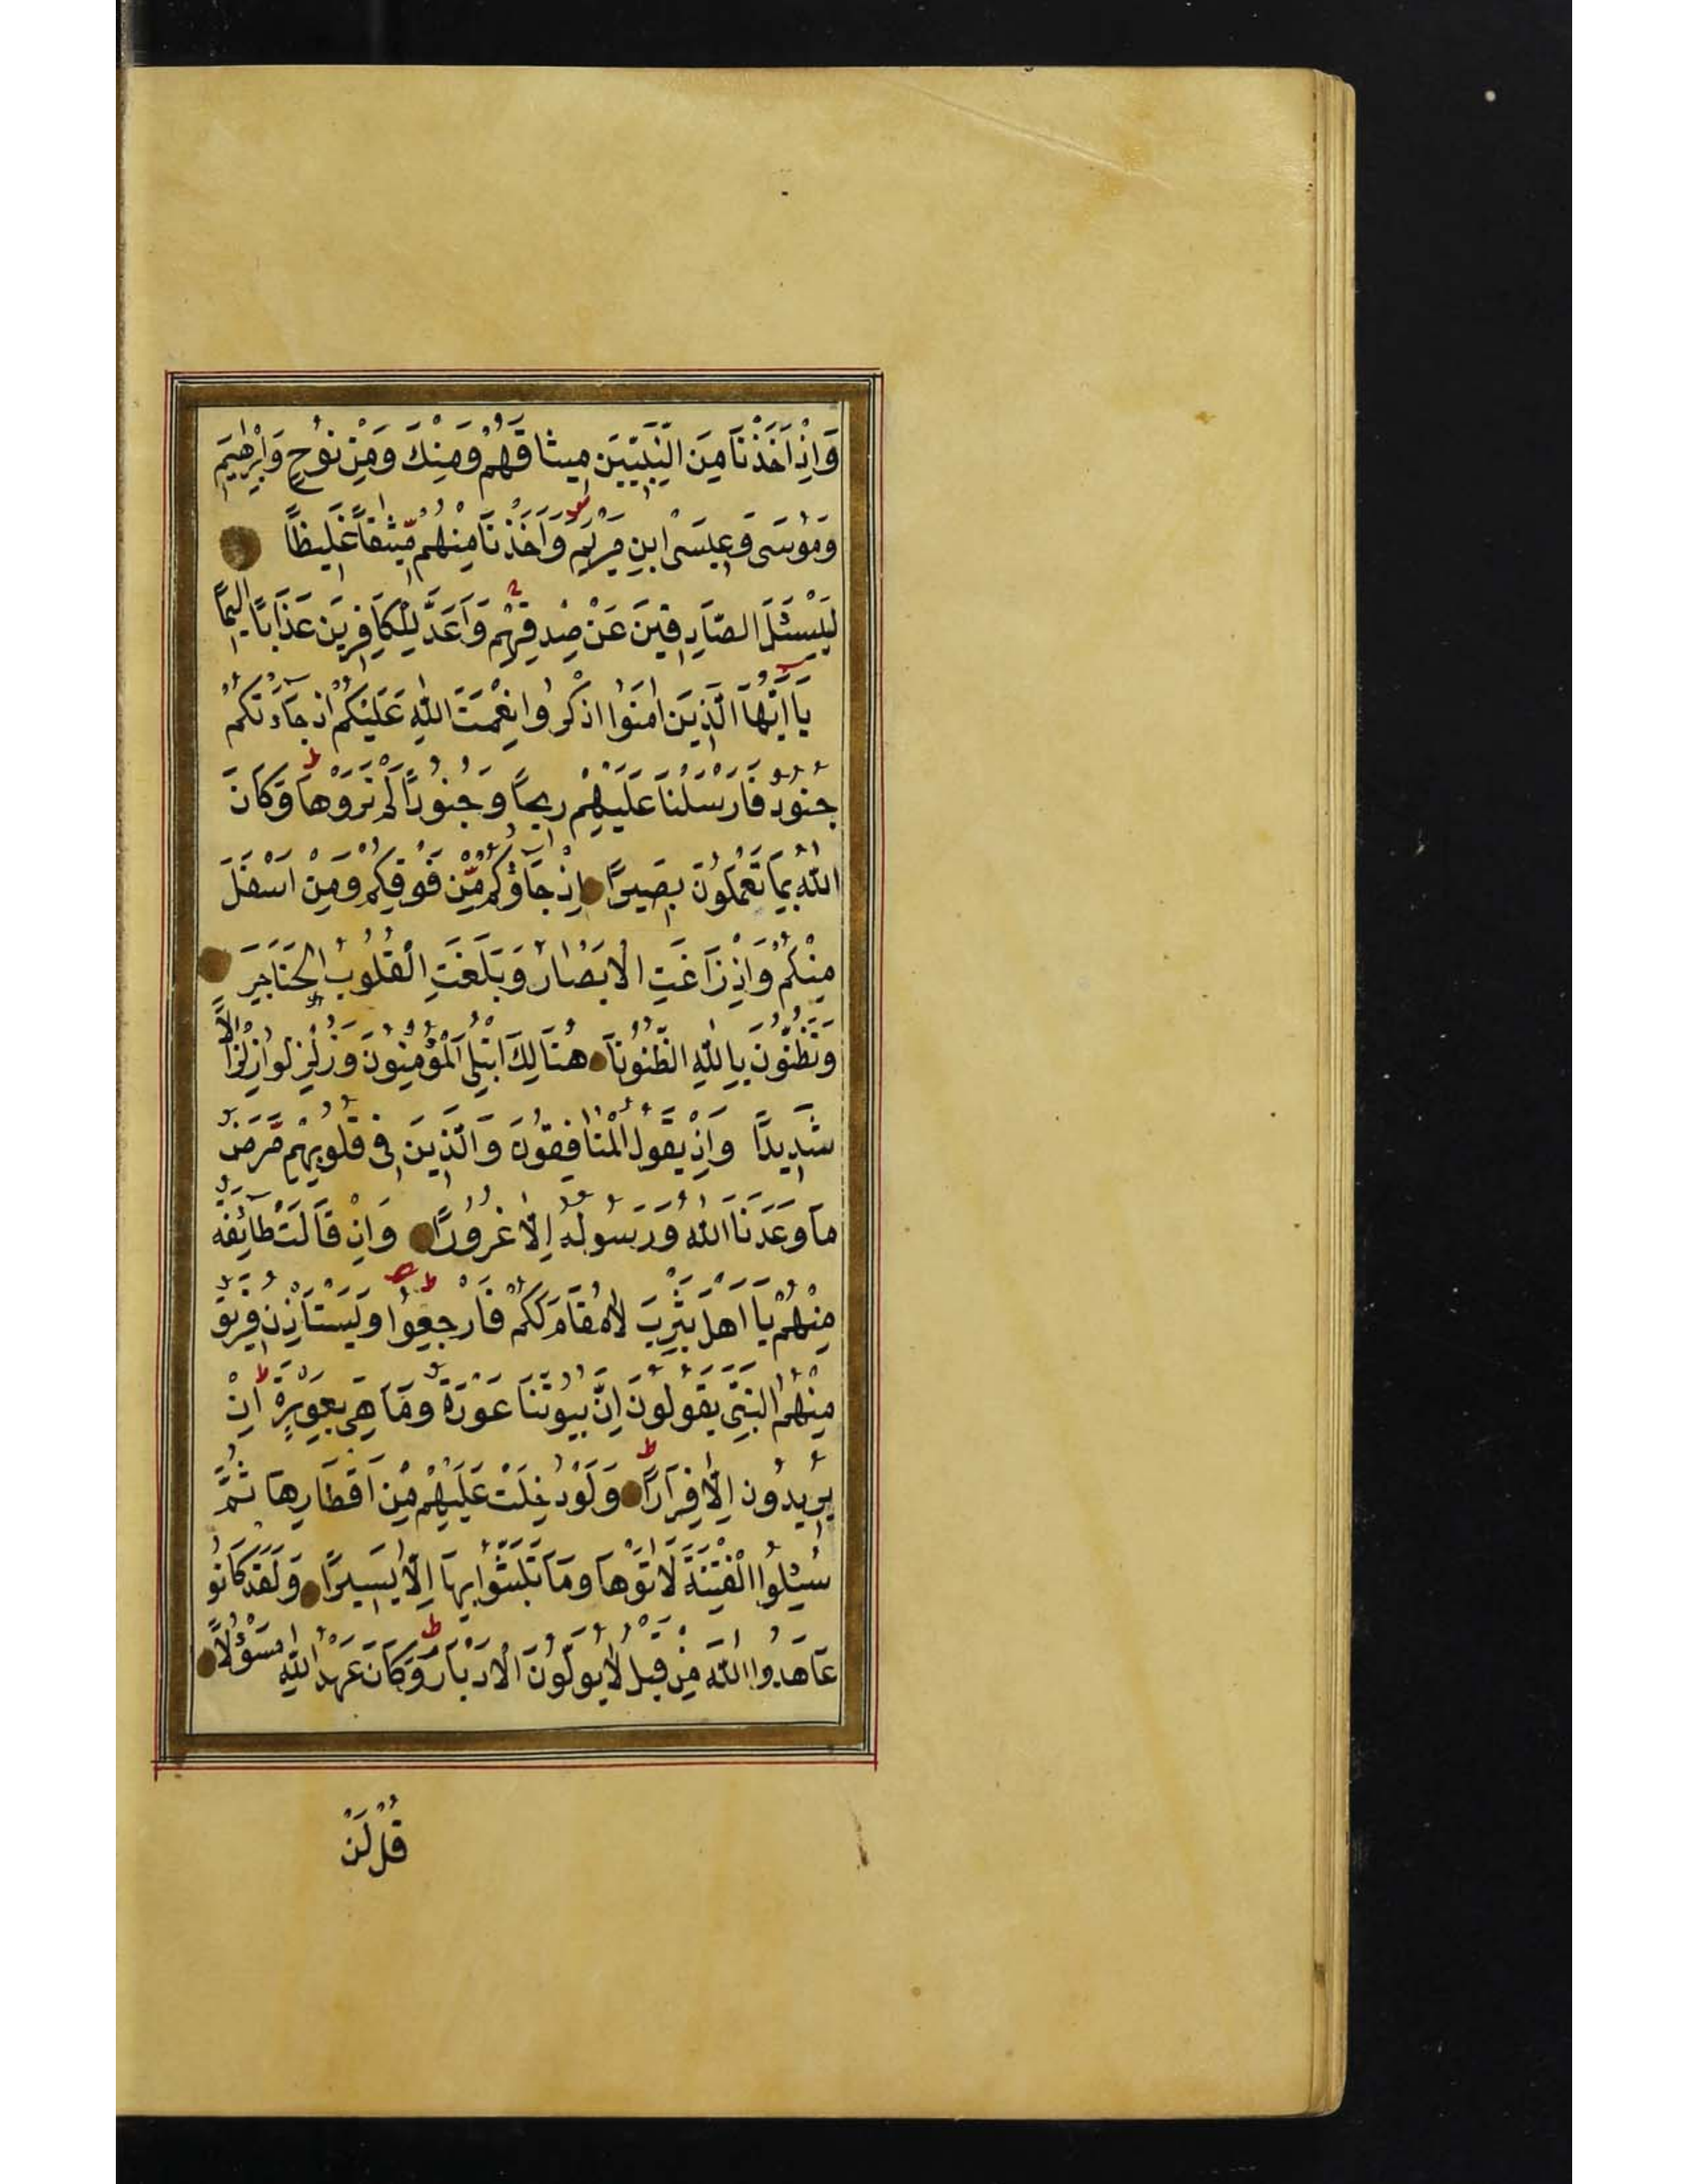 وَاِذْ اَخَذْنَا مِنَ النَّبِيّينَ ميثاقَهُمْ وَمِنْكَ وَمِنْ نوُحٍ وَاِبْرٰهيمَ
وَموُسَى وَعيسَى ابنِ مَرْيَمَ وَاَخَذْنَا مِنْهُمْ مّيثٰقاً غَليظاً
لِيَسْئَلَ الصَّادِقينَ عَنْ صِدقِهِمْ وَاَعَدَّ لِلْكَافِرينَ عَذَاباً اليماً
يَا اَيُّهَا الَّذينَ اٰمَنوُا اذْكُروُا نِعْمَتَ اللّٰهِ عَلَيْكُمْ اذ جَآءَتكُمْ
جنوُدٌ فَاَرْسَلْنَا عَلَيْهِمْ ريحاً وَجُنوُداً لَمْ تَرَوْهَا وَكَانَ
اللّٰهُ بِمَا تَعْمَلوُنَ بصَيراً اِذْ جَآؤُكُمْ مِّنْ فَوْقِكُمْ وَمِنْ اَسْفَلَ
مِنْكُمْ وَاِذْ زَاغَتِ الْاَبْصٰارُ وَبَلَغَتِ الْقُلوُبُ الحَنَاجِرَ
وَتَظُنّوُنَ بِاللّٰهِ الظّنوُنَا هُنَالِكَ ابْتُلِىَ الْمُؤْمِنوُنَ وَزُلْزِلوُا زِلْزَالاً
شَديداً وَاِذْ يَقوُلُ الْمُنٰافِقوُنَ وَالَّذينَ فى قُلوُبِهِمْ مَّرَضٌ
مَا وَعَدَنَا اللّٰهُ وَرَسوُلُهُ اِلّٰا غُروُراً وَاِذْ قَالَتْ طَآئِفَةٌ
مِنْهُمْ يَا اَهْلَ يَثْرِبَ لاٰ مُقَامَ لَكُمْ فَارْجِعوُا وَيَسْتَاْذِنُ فَريقٌ
مِنْهُمُ النَّبِىَّ يَقوُلوُنَ اِنَّ بُيوُتَنَا عَوْرَةٌ وَمَا هِىَ بِعَوْرَةٍ اِنْ
يُريدُونَ اِلّٰا فِرَاراً وَلَوْ دُخِلَتْ عَلَيْهِمْ مِنْ اَقطَارِهَا ثُمَّ
سُئِلوُا الْفِتْنَةَ لَاٰتَوْهَا وَمَا تَلَبَّثوُا بِهَا اِلّٰا يَسيراً وَلَقَدْ كَانوُ
عَاهَدُوا اللّٰهَ مِنْ قبل لاٰ يوَلّوُنَ الْاَدْبَارَ وَكَانَ عَهْدُ اللّٰهِ مَسْؤُلاً
قُلْ لَنْ